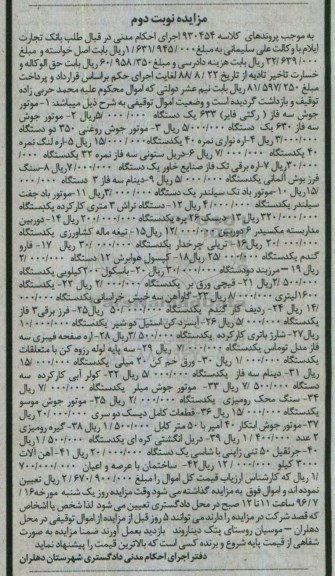 مزایده نوبت دوم
به موجب پروندهای کلاسه ۹۳۰۴۵۴ اجرای احکام مدنی در قبال طلب بانک تجارت
ایلام با وکالت علی سلیمانی به مبلغ ۱/۶۳۱/۹۴۵/۰۰۰ ریال بابت اصل خواسته و مبلغ
۳۲/۶۳۹/۰۰۰ ریال بابت هزینه دادرسی و مبلغ ۶۰/۹۵۸/۳۵۰ ریال بابت حق الوکاله و
خسارت تاخیر تادیه از تاریخ ۸۸/۸/۲۲ لغایت اجرای حکم براساس قرارداد و پرداخت
مبلغ ۸۱/۵۹۷/۲۵۰ ریال بابت نیم عشر دولتی که اموال محکوم علیه محمد حربی زاده
توقیف و بازداشت گردیده است و وضعیت اموال توقیفی به شرح ذیل میباشد ۱- موتور
جوش سه فاز ( رکتی فایر) ۶۳۳ یک دستگاه ۵/۰۰۰/۰۰۰ ریال ۲- موتور جوش
سه فاز ۶۳۰ یک دستگاه ۵/۰۰۰/۰۰۰ ریال ۳- موتور جوش روغنی ۳۵۰ دو دستگاه
۳/۰۰۰/۰۰۰ ریال ۴-اره نواری نمره ۴۰ یکدستگاه ۱۵/۰۰۰/۰۰۰ ریال ۵-اره لنگ نمره
۴۰ یکدستگاه ۷/۰۰۰/۰۰۰ ریال ۶-دریل ستونی سه فاز نمره ۳۲ یکدستگاه
ریال ۷-اره برقی تک فاز صنایع خاور یک دستگاه ۷/۰۰۰/۰۰۰ ریال ۸-سنگ
فرز بوش آلمانی یکدستگاه ۵/۰۰۰/۰۰۰ ریال ۹-دینام سه فاز ۳ دستگاه
ریال ۱۰-موتور باد تک سیلندر یک دستگاه ۳/۰۰۰/۰۰۰ ریال ۱۱-موتور باد جفت
سیلندر یکدستگاه ۴/۰۰۰/۰۰۰ ریال ۱۲- دستگاه تراش ۳ متری کارکرده یکدستگاه
۲۲۰/۰۰۰/۰۰۰ ریال ۱۳- دیسک ۲۶ پره یکدستگاه ۲۰۰/۰۰۰/۰۰۰ ریال ۱۴-دوربین
مداربسته مکسیدر ۶ دوربین ۱۲/۰۰۰/۰۰۰ ریال ۱۵- تیغه ماله کشاورزی یکدستگاه
۲۰/۰۰۰/۰۰۰ ریال ۱۶- تریلی چرخدار یکدستگاه ۳۰/۰۰۰/۰۰۰ ریال ۱۷- فارو
گندم یکدستگاه ۲۵/۰۰۰/۰۰۰ ریال ۱۸-کپسول هوابرش ۱۲ دستگاه
ریال ۱۹- مرزبند دو دستگاه ۳۰/۰۰۰/۰۰۰ ریال ۲۰-باسکول ۲۰۰ کیلویی یکدستگاه
۲/۵۰۰/۰۰۰ ریال ۲۱- قیچی ورق بر یکدستگاه ۲/۰۰۰/۰۰۰ ریال ۲۲- یکدستگاه
۱۶۰۰ لیتری ۸/۰۰۰/۰۰۰ ریال ۲۳- گاوآهن سه خیش خراسانی یکدستگاه
ریال ۲۴- ردیف کار گندم یکدستگاه ۵۰/۰۰۰/۰۰۰ ریال ۲۵- فرز برقی ۳ فاز
یکدستگاه ۵/۰۰۰/۰۰۰ ریال ۲۶- آبسردکن استیل دو شیر یکدستگاه
ریال ۲۷- شارژ باتری کارکرده یکدستگاه ۳/۵۰۰/۰۰۰ ریال ۲۸- اره صفحه فیبری سه
فاز مدل تومانی یکدستگاه ۷/۰۰۰/۰۰۰ ریال ۲۹- سه پایه لوله رزوه کن با متعلقات
یکدستگاه ۱/۰۰۰/۰۰۰ ریال ۳۰- ورق خم کن ۲ میلی یکدستگاه
ریال ۳۱- دینام سه فاز یکدستگاه ۵/۰۰۰/۰۰۰ ریال ۳۲- کولر آبی کارکرده سه
دستگاه ۷/۵۰۰/۰۰۰ ریال ۳۳- موتور جوش میلر یکدستگاه ۷/۰۰۰/۰۰۰ ریال
۳۴- سنگ محک رومیزی یکدستگاه ۲/۰۰۰/۰۰۰ ریال ۳۵- موتور جوش موسو
یکدستگاه ۱۵/۰۰۰/۰۰۰ ریال ۳۶- قطعات کامل دیسک دو سری ۲۰/۰۰۰/۰۰۰ ریال
۳۷-موتور جوش ابتکار ۴۰ آمپر با ۵۰ متر کابل ۱/۵۰۰/۰۰۰ ریال ۳۸- گیره رومیزی
۲ عدد ۱/۴۰۰/۰۰۰ ریال ۳۹- دریل انگشتی کره ای یکدستگاه ۱/۵۰۰/۰۰۰ ریال
۴۰-جرثقیل ۵۰ تنی ژاپنی با شاسی یک دستگاه ۲۰/۰۰۰/۰۰۰ ریال ۴۱- آهن آلات
۳۰۰۰ کیلو ۱۲/۰۰۰/۰۰۰ ریال ۴۲- ساختمان با عرصه و اعیان
ریال که کارشناس ارزیاب قیمت کل اموال را مبلغ ۲/۶۷۰/۹۰۰/۰۰۰ ریال تعیین
نموده اند و اموال فوق به مزایده گذاشته می شود وقت مزایده روز یک شنبه مورخه ۱۶/
۹۶/۷ ساعت ۱۱ تا ۱۲ صبح در محل دادگستری تعیین می شود لذا شخص یا اشخاص
که قصد شرکت در مزایده را دارند می توانند ۵ روز قبل از مزایده از اموال توقیفی در محل
دهلران –موسیان روستای پتک دیناروند بازدید بعمل آورند ضمنا مزایده به صورت
شفاهی از قیمت پایه شروع و برنده کسی است که بالاترین قیمت را پیشنهاد نماید
دفتر اجرای احکام مدنی دادگستری شهرستان دهلران